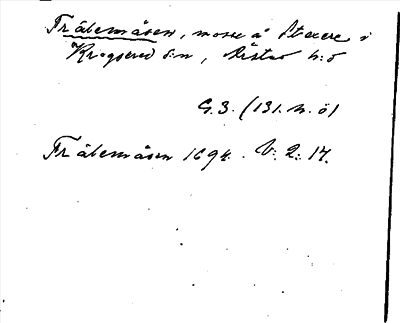 Fräbemåsen, mosse å Stexere i
Krogsered s:n, Årstad h:d
G.3. (131. n. ö)
Fräbemåsen 1694. V: 2: 17.